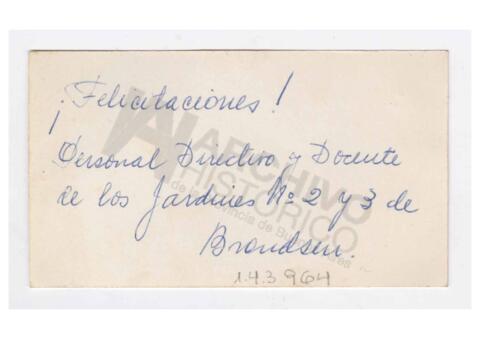 ¡Felicitaciones!
Personal Directivo y Docente
de los Jardines Nº 2 y 3 de
Brandsen.
1.4.3 964
ARCHIVO
HISTÓRICO
de la Provincia de Buenos Aires